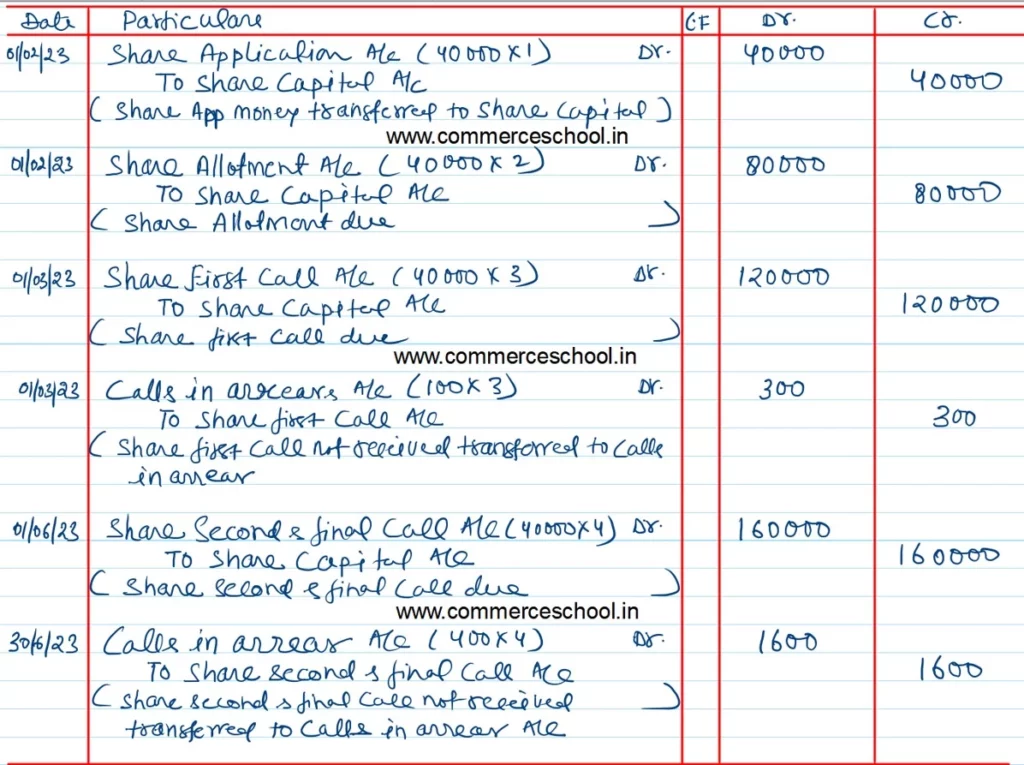 Date Particulars CF Dr. Cr.
01/02/23 Share Application A/c (40000×1) Dr. 40000
To Share Capital A/c 40000
(Share App money transferred to Share Capital)
www.commerceschool.in
01/02/23 Share Allotment A/c (40000×2) Dr. 80000
To Share Capital A/c 80000
(Share Allotment due)
01/03/23 Share First Call A/c (40000×3) Dr. 120000
To Share Capital A/c 120000
(Share first Call due)
www.commerceschool.in
01/03/23 Calls in arrears A/c (100×3) Dr. 300
To Share first Call A/c 300
(Share first Call not received transferred to Calls
in arrear
01/06/23 Share Second & final Call A/c (40000×4) Dr. 160000
To Share Capital A/c 160000
(Share second & final Call due)
www.commerceschool.in
30/6/23 Calls in arrear A/c (400×4) Dr. 1600
To Share second & final Call A/c 1600
(Share second & final Call not received)
transferred to Calls in arrear A/c